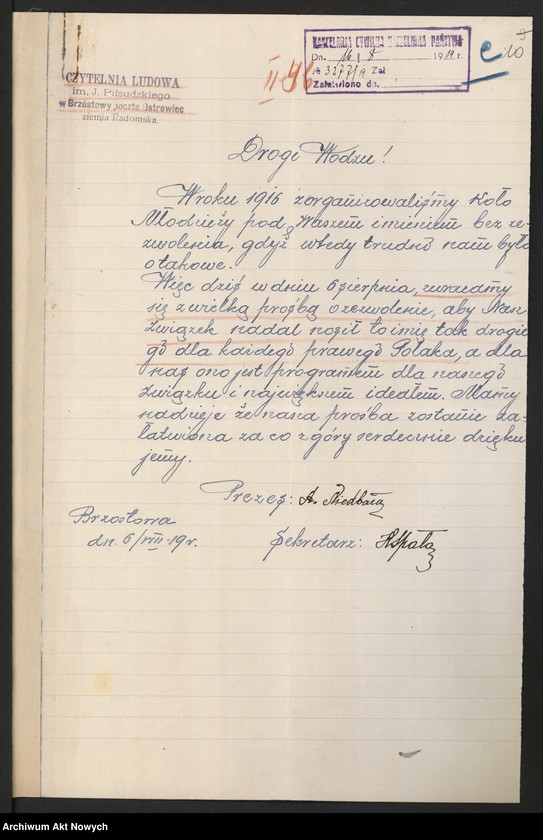 CZYTELNIA LUDOWA
im. J. Piłsudzkiego
w Brzóstowy poczta Ostrowiec
ziemia Radomska.
KANCELARJA CYWILNA NACZELNIKA PAŃSTWA
Dn. 16 / 8 1919 r.
№ 3277/19 Zał
Załatwiono dn.
II 46
e
10
Drogi Wodzu!
W roku 1916 zorganizowaliśmy Koło
Młodzieży pod Waszem imieniem bez ze-
zwolenia, gdyż wtedy trudno nam było
o takowe.
Więc dziś w dniu 6 sierpnia, zwracamy
się z wielką prośbą o zezwolenie, aby Nasz
Związek nadal nosił to imię tak drogie
go dla każdego prawego Polaka, a dla
nas ono jest programem dla naszego
związku i największem ideałem. Mamy
nadzieje że nasza prośba zostanie za-
łatwiona za co z góry serdecznie dzięku
jemy.
Prezes: A. Niedbała
Brzostowa
dn. 6/VIII-19 r.
Sekretarz:
Archiwum Akt Nowych